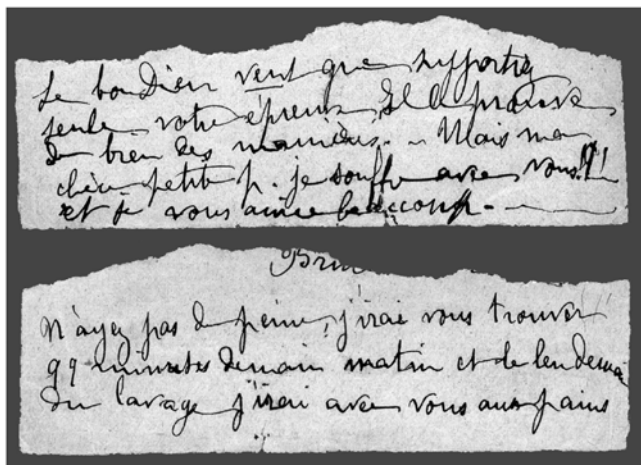 Le bon Dieu veut que supportiez
seule votre épreuve, Il le prouve
de bien des manières... Mais ma
chère petite p. je souffre avec vous!!!
et je vous aime beaucoup.
n'ayez pas de peine, j'irai vous trouver
qq minutes demain matin et le lendemain
du lavage j'irai avec vous aux pains